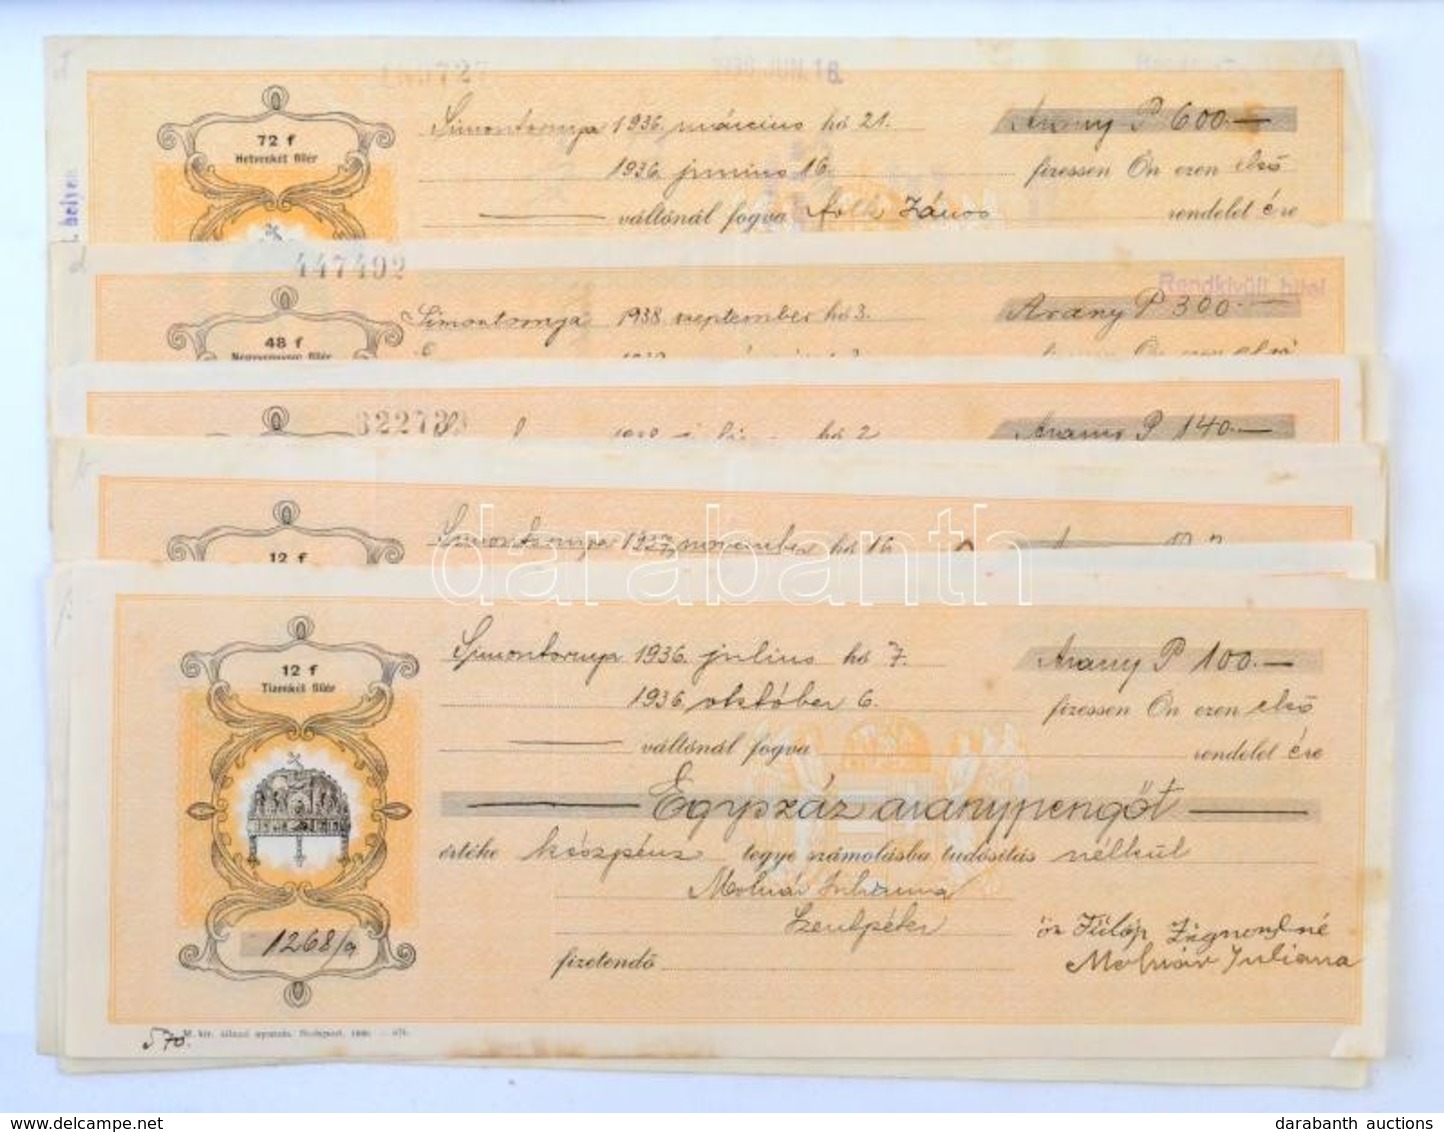 727
JUN. 16.
72 f
Hetvenkét fillér
Simontornya 1936. március hó 21.
Arany P 600.—
1936. junius 16.
fizessen Ön ezen első
váltónál fogva
János
rendelet ére
447402
Rendkivüli hitel
48 f
Negyvennyolc fillér
Simontornya 1938. szeptember hó 3.
Arany P 300.—
Ön ezen első
hó 2
Arany P 140.—
12 f
Simontornya 1937. november hó 16.
darabanth
12 f
Tizenkét fillér
Simontornya 1936. julius hó 7.
Arany P 100.—
1936. október 6.
fizessen Ön ezen első
váltónál fogva
rendelet ére
Egyszáz aranypengőt
értéke készpénz tegye számolásba tudósítás nélkül
Molnár Julianna
Szentpéter
öz Fülöp Zsigmondné
Molnár Juliana
fizetendő
1268/a
570.
M. kir. állami nyomda. Budapest.
darabanth auctions